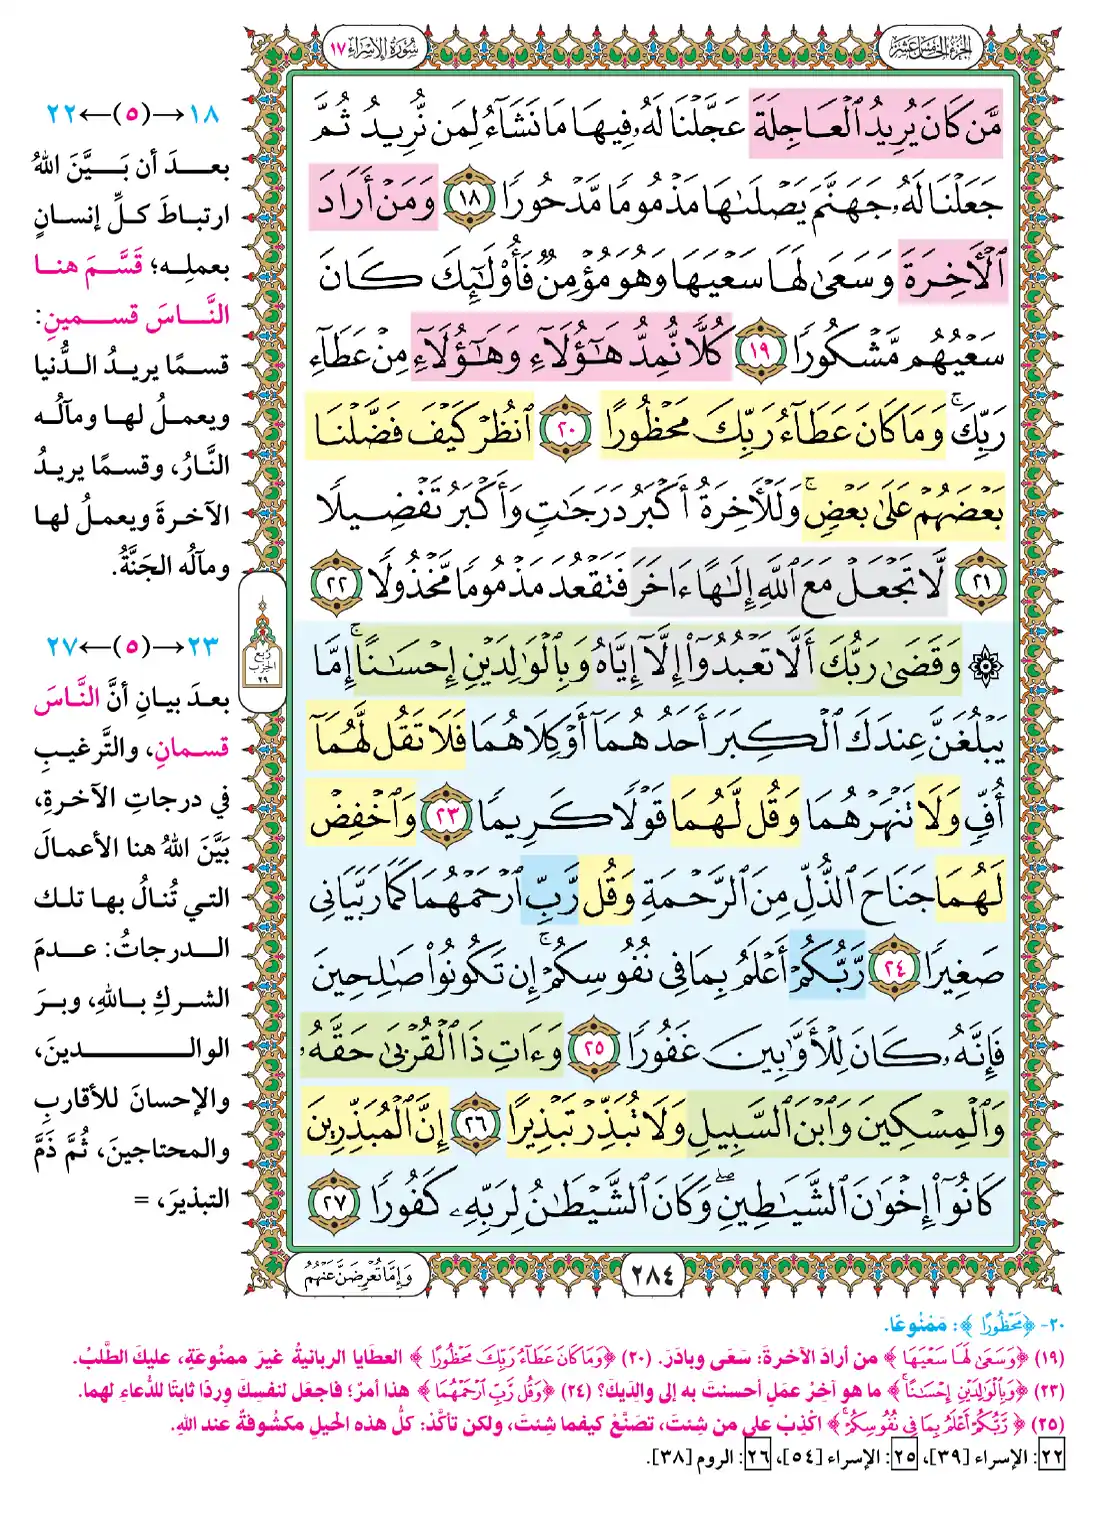 الجزء الخامس عشر
سورة الإسراء ١٧
مَّن كَانَ يُرِيدُ ٱلْعَاجِلَةَ عَجَّلْنَا لَهُۥ فِيهَا مَا نَشَآءُ لِمَن نُّرِيدُ ثُمَّ
جَعَلْنَا لَهُۥ جَهَنَّمَ يَصْلَىٰهَا مَذْمُومًا مَّدْحُورًا ١٨ وَمَنْ أَرَادَ
ٱلْأَخِرَةَ وَسَعَىٰ لَهَا سَعْيَهَا وَهُوَ مُؤْمِنٌ فَأُو۟لَٰٓئِكَ كَانَ
سَعْيُهُم مَّشْكُورًا ١٩ كُلًّا نُّمِدُّ هَٰٓؤُلَآءِ وَهَٰٓؤُلَآءِ مِنْ عَطَآءِ
رَبِّكَۚ وَمَا كَانَ عَطَآءُ رَبِّكَ مَحْظُورًا ٢٠ ٱنظُرْ كَيْفَ فَضَّلْنَا
بَعْضَهُمْ عَلَىٰ بَعْضٍۚ وَلَلْأَخِرَةُ أَكْبَرُ دَرَجَٰتٍ وَأَكْبَرُ تَفْضِيلًا
٢١ لَّا تَجْعَلْ مَعَ ٱللَّهِ إِلَٰهًا ءَاخَرَ فَتَقْعُدَ مَذْمُومًا مَّخْذُولًا ٢٢
۞ وَقَضَىٰ رَبُّكَ أَلَّا تَعْبُدُوٓا۟ إِلَّآ إِيَّاهُ وَبِٱلْوَٰلِدَيْنِ إِحْسَٰنًاۚ إِمَّا
يَبْلُغَنَّ عِندَكَ ٱلْكِبَرَ أَحَدُهُمَآ أَوْ كِلَاهُمَا فَلَا تَقُل لَّهُمَآ
أُفٍّ وَلَا تَنْهَرْهُمَا وَقُل لَّهُمَا قَوْلًا كَرِيمًا ٢٣ وَٱخْفِضْ
لَهُمَا جَنَاحَ ٱلذُّلِّ مِنَ ٱلرَّحْمَةِ وَقُل رَّبِّ ٱرْحَمْهُمَا كَمَا رَبَّيَانِى
صَغِيرًا ٢٤ رَّبُّكُمْ أَعْلَمُ بِمَا فِى نُفُوسِكُمْۚ إِن تَكُونُوا۟ صَٰلِحِينَ
فَإِنَّهُۥ كَانَ لِلْأَوَّٰبِينَ غَفُورًا ٢٥ وَءَاتِ ذَا ٱلْقُرْبَىٰ حَقَّهُۥ
وَٱلْمِسْكِينَ وَٱبْنَ ٱلسَّبِيلِ وَلَا تُبَذِّرْ تَبْذِيرًا ٢٦ إِنَّ ٱلْمُبَذِّرِينَ
كَانُوٓا۟ إِخْوَٰنَ ٱلشَّيَٰطِينِۖ وَكَانَ ٱلشَّيْطَٰنُ لِرَبِّهِۦ كَفُورًا ٢٧
٢٨٤
وَإِمَّا تُعْرِضَنَّ عَنْهُمُ
١٨→(٥)←٢٢
بعدَ أن بَيَّنَ اللهُ
ارتباطَ كلِّ إنسانٍ
بعملِه؛ قَسَّمَ هنا
النَّاسَ قسمينِ:
قسمًا يريدُ الدُّنيا
ويعملُ لها ومآلُه
النَّارُ، وقسمًا يريدُ
الآخرةَ ويعملُ لها
ومآلُه الجَنَّةُ.
ربع
الحزب
٢٩
٢٣→(٥)←٢٧
بعدَ بيانِ أنَّ النَّاسَ
قسمانِ، والتَّرغيبِ
في درجاتِ الآخرةِ،
بَيَّنَ اللهُ هنا الأعمالَ
التي تُنالُ بها تلك
الدرجاتُ: عدمَ
الشركِ باللهِ، وبرَ
الوالدينَ،
والإحسانَ للأقاربِ
والمحتاجينَ، ثُمَّ ذَمَّ
التبذيرَ، =
٢٠- ﴿مَحْظُورًا﴾: مَمْنُوعًا.
(١٩) ﴿وَسَعَىٰ لَهَا سَعْيَهَا﴾ من أرادَ الآخرةَ: سَعَى وبادَرَ. (٢٠) ﴿وَمَا كَانَ عَطَآءُ رَبِّكَ مَحْظُورًا﴾ العطايا الربانيةُ غيرَ ممنُوعَةٍ، عليكَ الطَّلبُ.
(٢٣) ﴿وَبِٱلْوَٰلِدَيْنِ إِحْسَٰنًا﴾ ما هو آخرُ عملٍ أحسنتَ به إلى والدِيكَ؟ (٢٤) ﴿وَقُل رَّبِّ ٱرْحَمْهُمَا﴾ هذا أمرٌ؛ فاجعل لنفسِكَ وِردًا ثابتًا للدُّعاءِ لهما.
(٢٥) ﴿رَّبُّكُمْ أَعْلَمُ بِمَا فِى نُفُوسِكُمْ﴾ اكْذِبْ على من شِئتَ، تصَنَّعْ كيفما شِئتَ، ولكن تأكَّدْ: كلُّ هذه الحيلِ مكشُوفةٌ عند اللهِ.
٢٢: الإسراء [٣٩]، ٢٥: الإسراء [٥٤]، ٢٦: الروم [٣٨].